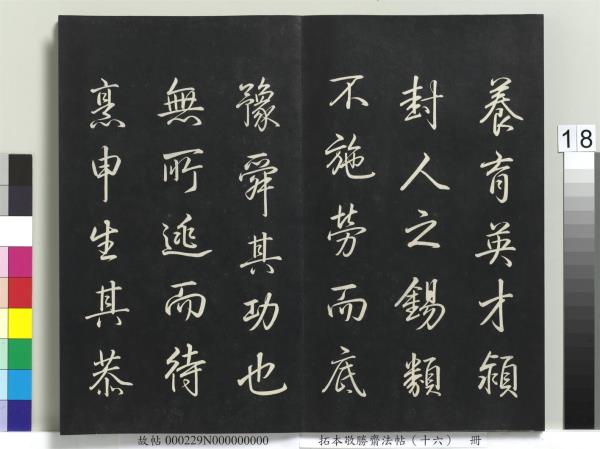 養育英才潁
封人之錫類
不施勞而底
豫舜其功也
無所逃而待
烹申生其恭
18
故帖 000229N000000000
拓本敬勝齋法帖（十六） 冊